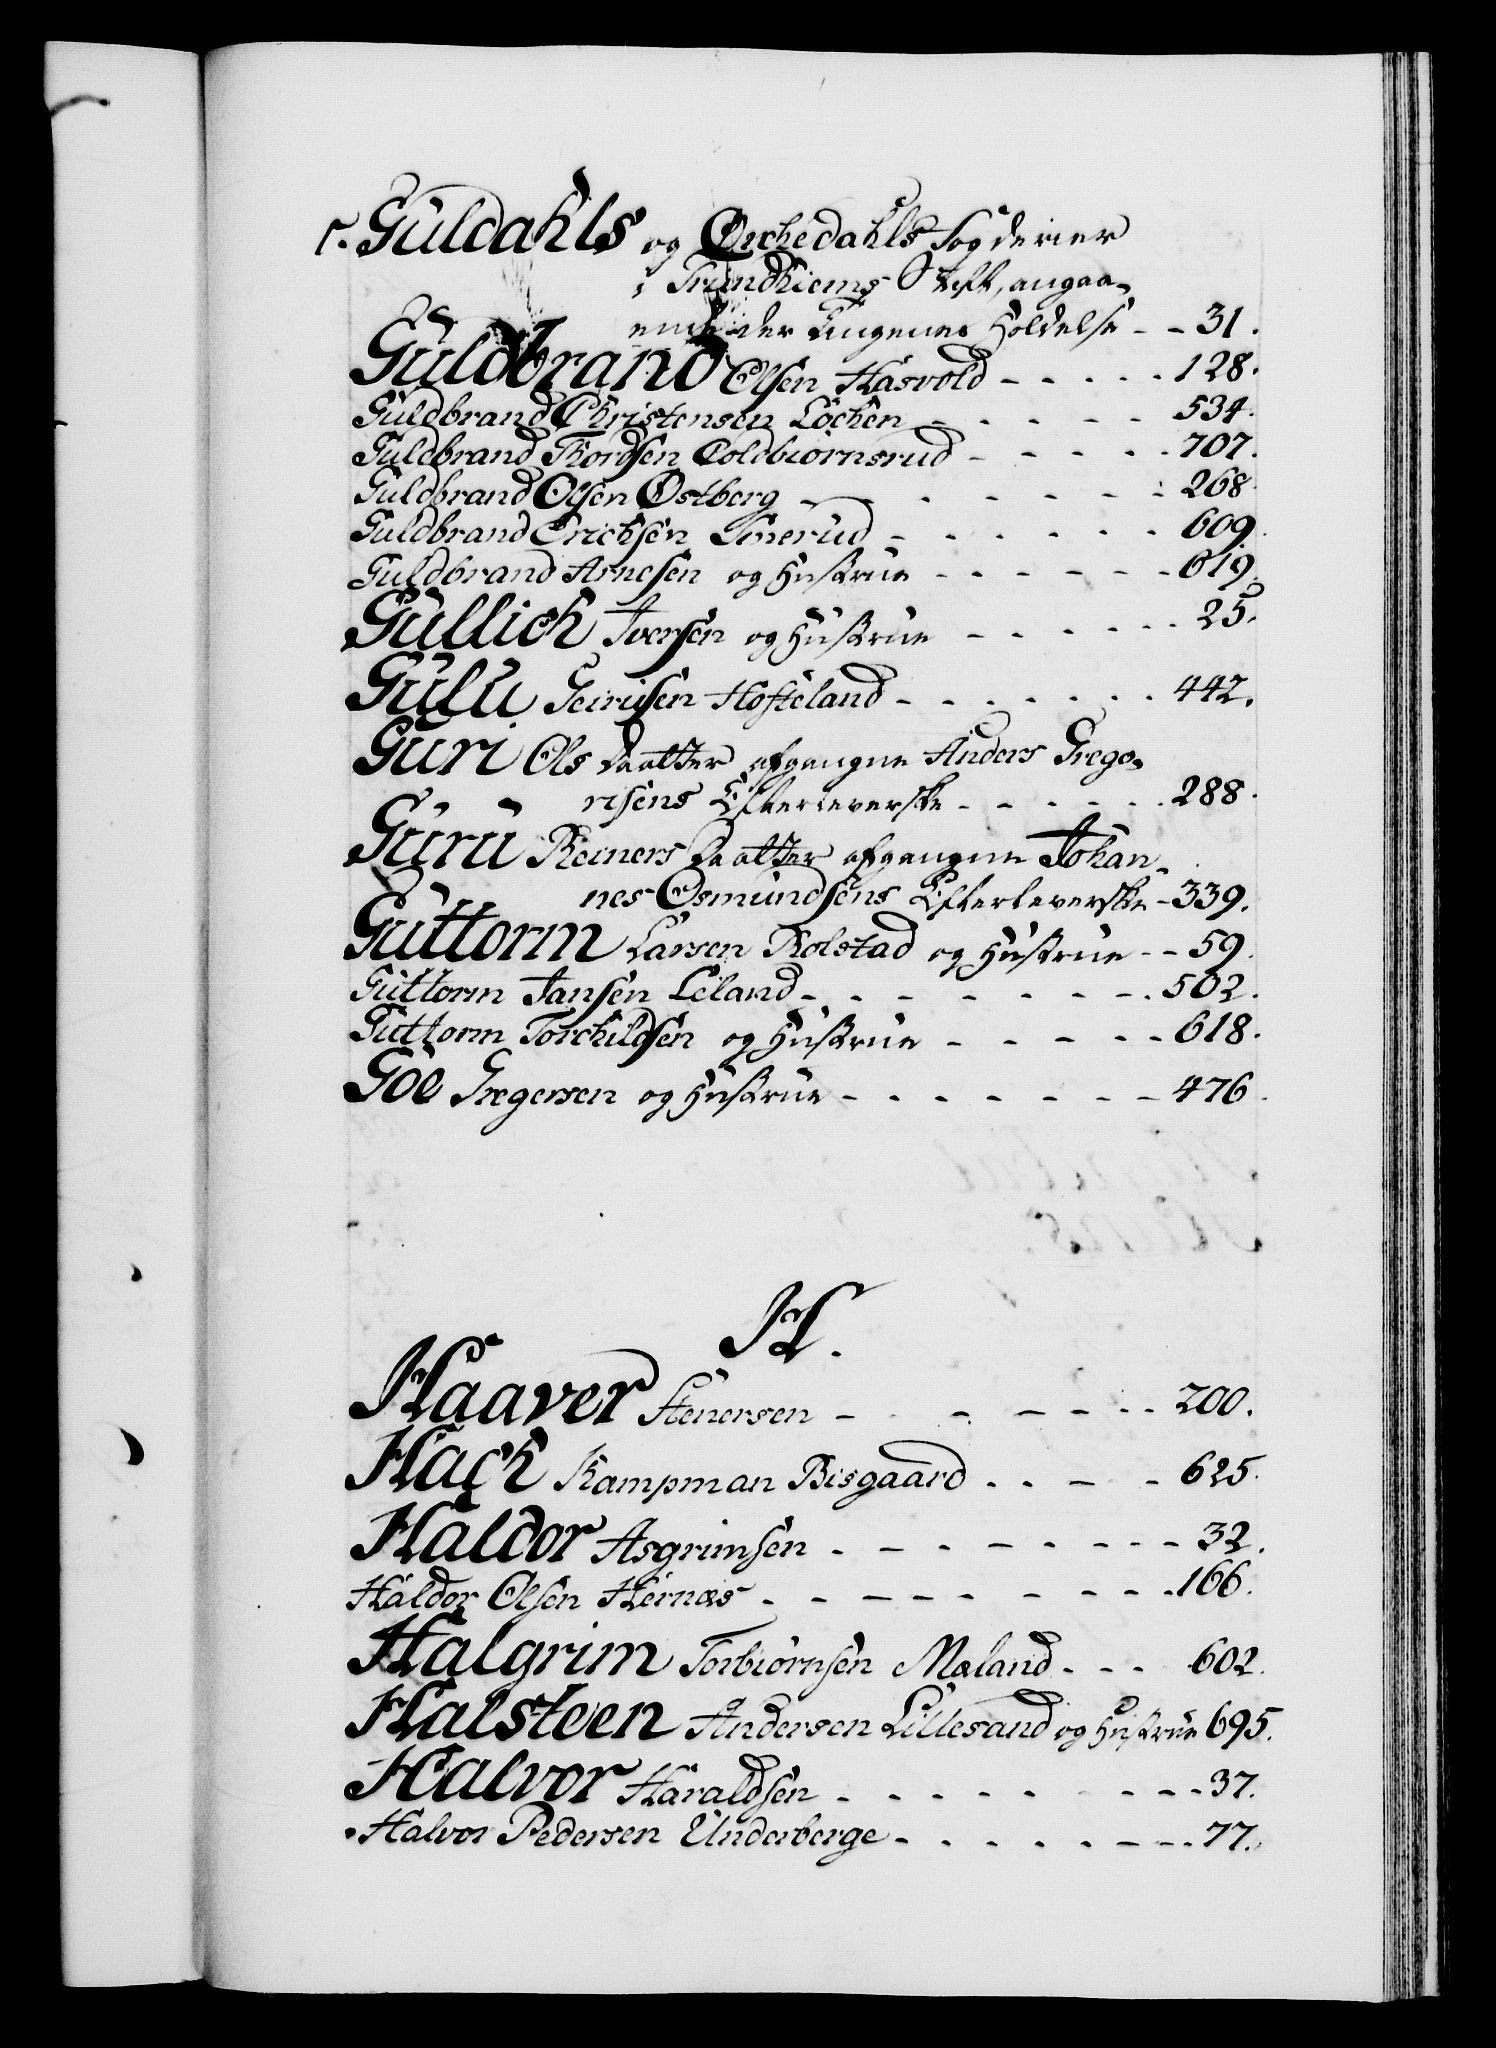 r. Guldahls og Orchedahls Fogderier
i Trundhiems Stift, angaa-
ende der Tingenes Holdelse - - 31.
Guldbrand Olsen Hasvold - - - - - 128.
Guldbrand Christensen Lochen - - - - - 534.
Guldbrand Thordsen Coldbiornsrud - - - - - 707.
Guldbrand Olsen Østberg - - - - - - - 268
Guldbrand Erichsen Smerud - - - - - - 609.
Guldbrand Arnesen og Hustrue - - - - - - 619.
Gullich Iversen og Hustrue - - - - - - 25.
Gulu Geirusen Hofteland - - - - - - 442.
Guri Ols Daatter afgangne Anders Grego-
risens Efterleverske - - - - - - 288.
Guru Reiners Daatter afgangne Johan-
nes Osmundsens Efterleverske - 339.
Guttorm Larsen Rolstad og Hustrue - - 59.
Guttorm Jansen Leland - - - - - - - - 502.
Guttorm Torchildsen og Hustrue - - - - - 618.
Goe Gregersen og Hustrue - - - - - - - 476.
H.
Haaver Stenersen - - - - - - - 200.
Hach Kampman Bisgaard - - - - 625.
Haldor Asgrimsen - - - - - - - - 32.
Haldor Olsen Hernæs - - - - - - - - - 166.
Halgrim Torbiørnsen Mæland - - - 602.
Halsteen Andersen Lillesand og Hustrue 695.
Halvor Haraldsen - - - - - - - - - 37.
Halvor Pedersen Underberge - - - - - - - 77.